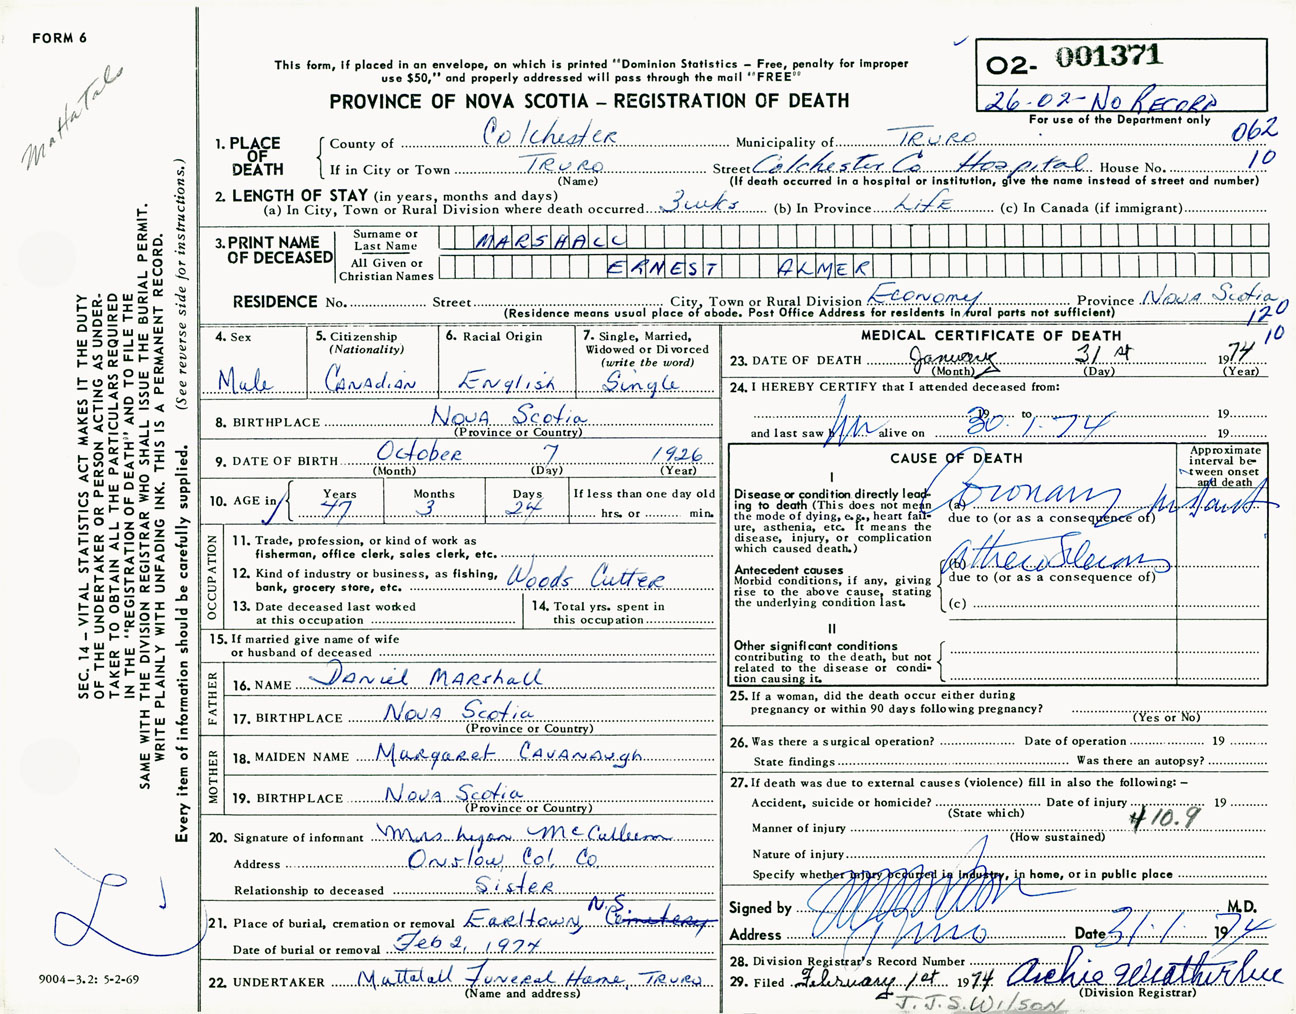 FORM 6
Mattatals
This form, if placed in an envelope, on which is printed "Dominion Statistics – Free, penalty for improper
use $50," and properly addressed will pass through the mail "FREE"
PROVINCE OF NOVA SCOTIA – REGISTRATION OF DEATH
02- 001371
26-02-No Record
For use of the Department only
062
10
1. PLACE OF DEATH
County of Colchester Municipality of Truro
If in City or Town Truro Street Colchester Co Hospital House No.
(Name) (If death occurred in a hospital or institution, give the name instead of street and number)
2. LENGTH OF STAY (in years, months and days)
(a) In City, Town or Rural Division where death occurred 3 wks (b) In Province Life (c) In Canada (if immigrant)
3. PRINT NAME OF DECEASED
Surname or Last Name MARSHALL
All Given or Christian Names ERNEST ALMER
RESIDENCE No. Street City, Town or Rural Division Economy Province Nova Scotia
(Residence means usual place of abode. Post Office Address for residents in rural parts not sufficient)
120
10
4. Sex
Male
5. Citizenship
(Nationality)
Canadian
6. Racial Origin
English
7. Single, Married,
Widowed or Divorced
(write the word)
Single
8. BIRTHPLACE Nova Scotia
(Province or Country)
9. DATE OF BIRTH October 7 1926
(Month) (Day) (Year)
10. AGE in
Years Months Days If less than one day old
47 3 24 hrs. or min.
OCCUPATION
11. Trade, profession, or kind of work as
fisherman, office clerk, sales clerk, etc.
12. Kind of industry or business, as fishing,
bank, grocery store, etc. Woods Cutter
13. Date deceased last worked
at this occupation
14. Total yrs. spent in
this occupation
15. If married give name of wife
or husband of deceased
FATHER
16. NAME Daniel Marshall
17. BIRTHPLACE Nova Scotia
(Province or Country)
MOTHER
18. MAIDEN NAME Margaret Cavanaugh
19. BIRTHPLACE Nova Scotia
(Province or Country)
20. Signature of informant Mrs McCullum
Address Onslow, Col. Co.
Relationship to deceased Sister
21. Place of burial, cremation or removal Earltown, N.S. Cemetery
Date of burial or removal Feb 2, 1974
22. UNDERTAKER Mattatall Funeral Home, Truro
(Name and address)
MEDICAL CERTIFICATE OF DEATH
23. DATE OF DEATH January 31st 1974
(Month) (Day) (Year)
24. I HEREBY CERTIFY that I attended deceased from:
19 to 19
and last saw him alive on 30.1.74 19
CAUSE OF DEATH
Approximate
interval be-
tween onset
and death
I
Disease or condition directly lead-
ing to death (This does not mean
the mode of dying, e.g., heart fail-
ure, asthenia, etc. It means the
disease, injury, or complication
which caused death.)
(a) Coronary Instant
due to (or as a consequence of)
Antecedent causes
Morbid conditions, if any, giving
rise to the above cause, stating
the underlying condition last.
(b)
due to (or as a consequence of)
(c)
II
Other significant conditions
contributing to the death, but not
related to the disease or condi-
tion causing it.
25. If a woman, did the death occur either during
pregnancy or within 90 days following pregnancy?
(Yes or No)
26. Was there a surgical operation? Date of operation 19
State findings Was there an autopsy?
27. If death was due to external causes (violence) fill in also the following: –
Accident, suicide or homicide? Date of injury 19
(State which)
410.9
Manner of injury
(How sustained)
Nature of injury
Specify whether injury occurred in industry, in home, or in public place
Signed by M.D.
Address Truro Date 31.1. 1974
28. Division Registrar's Record Number
29. Filed February 1st 1974 Archie Weatherbee
(Division Registrar)
J.J.S. WILSON
SEC. 14 – VITAL STATISTICS ACT MAKES IT THE DUTY
OF THE UNDERTAKER OR PERSON ACTING AS UNDER-
TAKER TO OBTAIN ALL THE PARTICULARS REQUIRED
IN THE "REGISTRATION OF DEATH" AND TO FILE THE
SAME WITH THE DIVISION REGISTRAR WHO SHALL ISSUE THE BURIAL PERMIT.
WRITE PLAINLY WITH UNFADING INK. THIS IS A PERMANENT RECORD.
Every item of information should be carefully supplied. (See reverse side for instructions.)
9004–3.2: 5-2-69